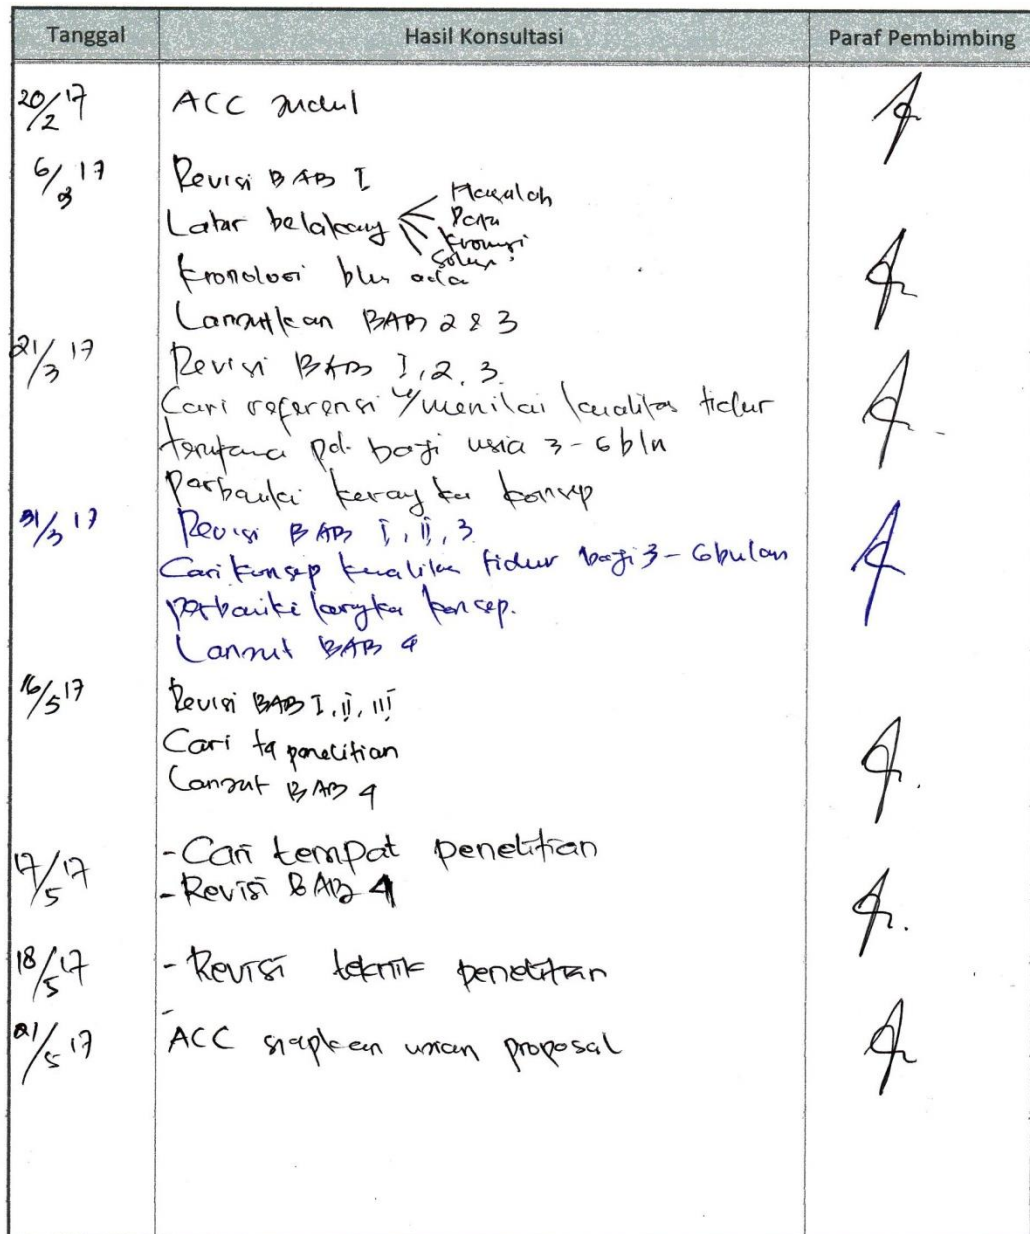 Tanggal Hasil Konsultasi Paraf Pembimbing
20/2 17 ACC Judul
6/3 17 Revisi BAB I
Masalah
Latar belakang
Kronologi
Solusi
Kronologi blm ada
Lanjutkan BAB 2 & 3
21/3 17 Revisi BAB I, 2, 3.
Cari referensi u/ menilai kualitas tidur
terutama pd. bayi usia 3 - 6 bln
Perbaiki kerangka konsep
31/3 17 Revisi BAB I, II, 3
Cari konsep kualitas tidur bayi 3 - 6 bulan
perbaiki kerangka konsep.
Lanjut BAB 4
16/5 17 Revisi BAB I, II, III
Cari penelitian
Lanjut BAB 4
17/5 17 - Cari tempat penelitian
- Revisi BAB 4
18/5 17 - Revisi teknik penelitian
21/5 17 ACC siapkan ujian proposal